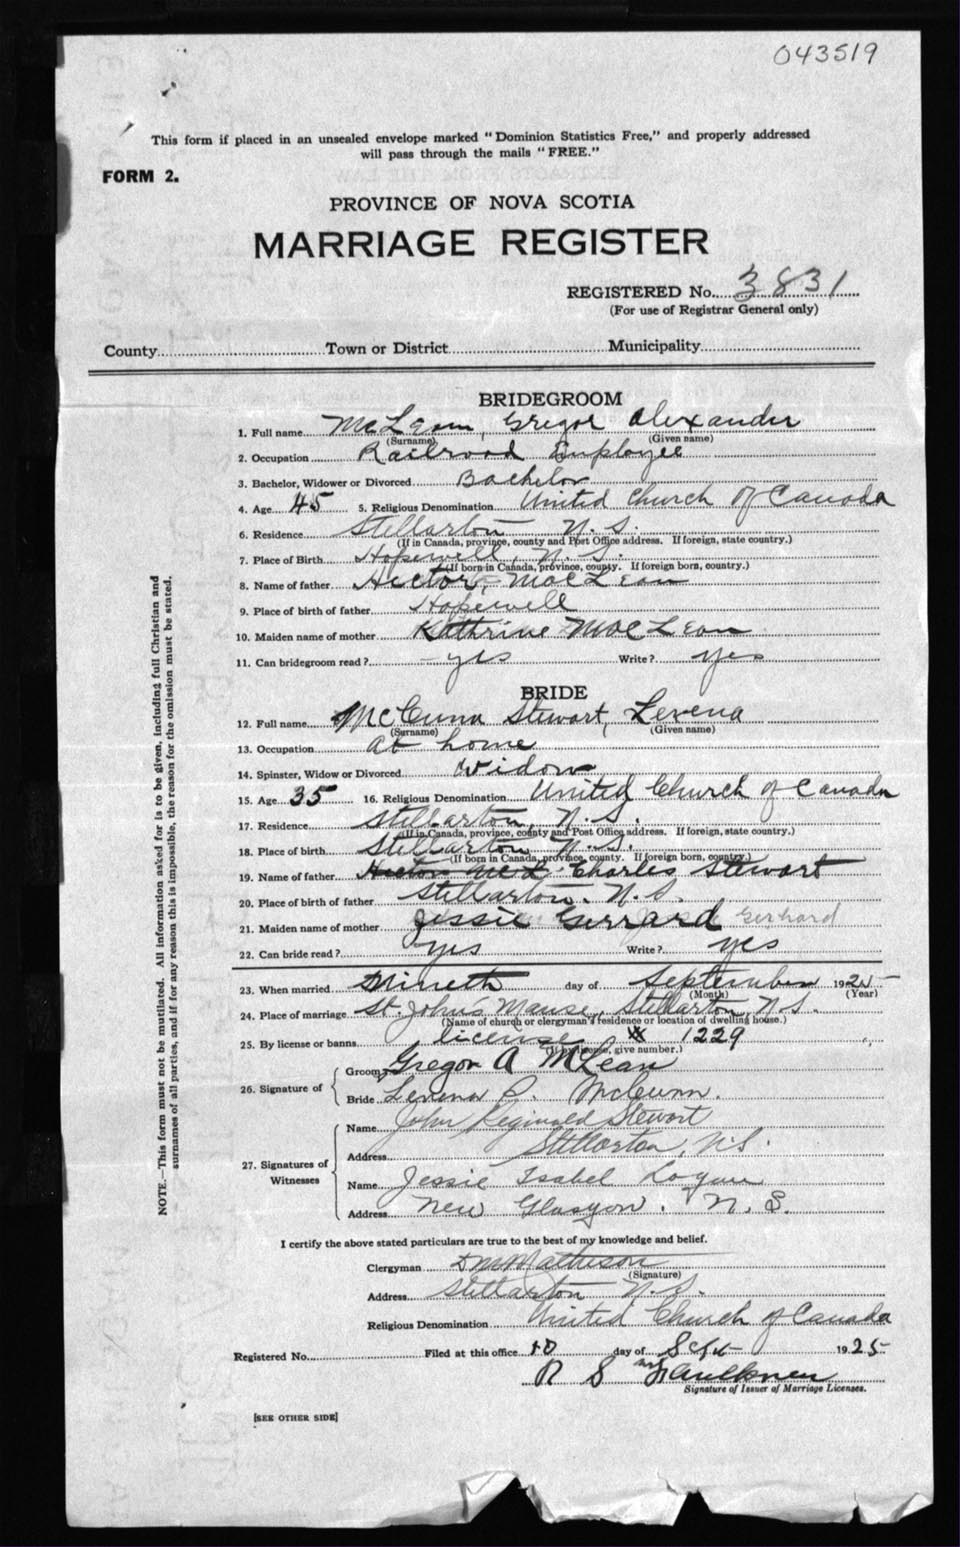 043519
This form if placed in an unsealed envelope marked "Dominion Statistics Free," and properly addressed
will pass through the mails "FREE."
FORM 2.
PROVINCE OF NOVA SCOTIA
MARRIAGE REGISTER
REGISTERED No. 3831
(For use of Registrar General only)
County Town or District Municipality
BRIDEGROOM
1. Full name McLean, Gregor Alexander
(Surname) (Given name)
2. Occupation Railroad Employee
3. Bachelor, Widower or Divorced Bachelor
4. Age 45 5. Religious Denomination United Church of Canada
6. Residence Stellarton N.S.
(If in Canada, province, county and Post Office address. If foreign, state country.)
7. Place of Birth Hopewell, N.S.
(If born in Canada, province, county. If foreign born, country.)
8. Name of father Hector MacLean
9. Place of birth of father Hopewell
10. Maiden name of mother Kathrine MacLean
11. Can bridegroom read? yes Write? yes
BRIDE
12. Full name McCunn Stewart, Levena
(Surname) (Given name)
13. Occupation at home
14. Spinster, Widow or Divorced Widow
15. Age 35 16. Religious Denomination United Church of Canada
17. Residence Stellarton, N.S.
(If in Canada, province, county and Post Office address. If foreign, state country.)
18. Place of birth Stellarton N.S.
(If born in Canada, province, county. If foreign born, country.)
19. Name of father Hector McL Charles Stewart
20. Place of birth of father Stellarton. N.S.
21. Maiden name of mother Jessie Gerrard Gerhard
22. Can bride read? yes Write? yes
23. When married Nineth day of September 1925
(Month) (Year)
24. Place of marriage St. John's Manse, Stellarton, N.S.
(Name of church or clergyman's residence or location of dwelling house.)
25. By license or banns license 1229
(If by license, give number.)
26. Signature of
Groom Gregor A McLean
Bride Levena P. McCunn.
27. Signatures of Witnesses
Name John Reginald Stewart
Address Stellarton, N.S.
Name Jessie Isabel Logan
Address New Glasgow. N.S.
I certify the above stated particulars are true to the best of my knowledge and belief.
Clergyman D M Matheson
(Signature)
Address Stellarton N.S.
Religious Denomination United Church of Canada
Registered No. Filed at this office 10 day of Sept 1925
R S Faulkner
Signature of Issuer of Marriage Licenses.
[SEE OTHER SIDE]
NOTE.—This form must not be mutilated. All information asked for is to be given, including full Christian and
surnames of all parties, and if for any reason this is impossible, the reason for the omission must be stated.